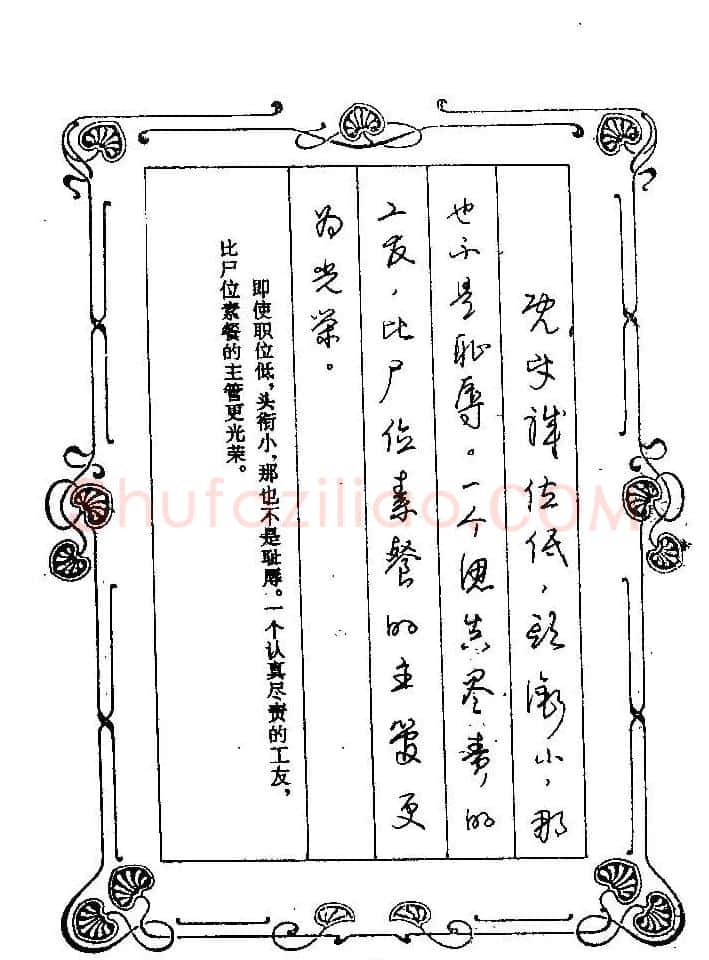 既使職位低，頭銜小，那
也不是耻辱。一个認真尽責的
工友，比尸位素餐的主管更
为光荣。
即使职位低，头衔小，那也不是耻辱。一个认真尽责的工友，
比尸位素餐的主管更光荣。
Shufaziliao.COM